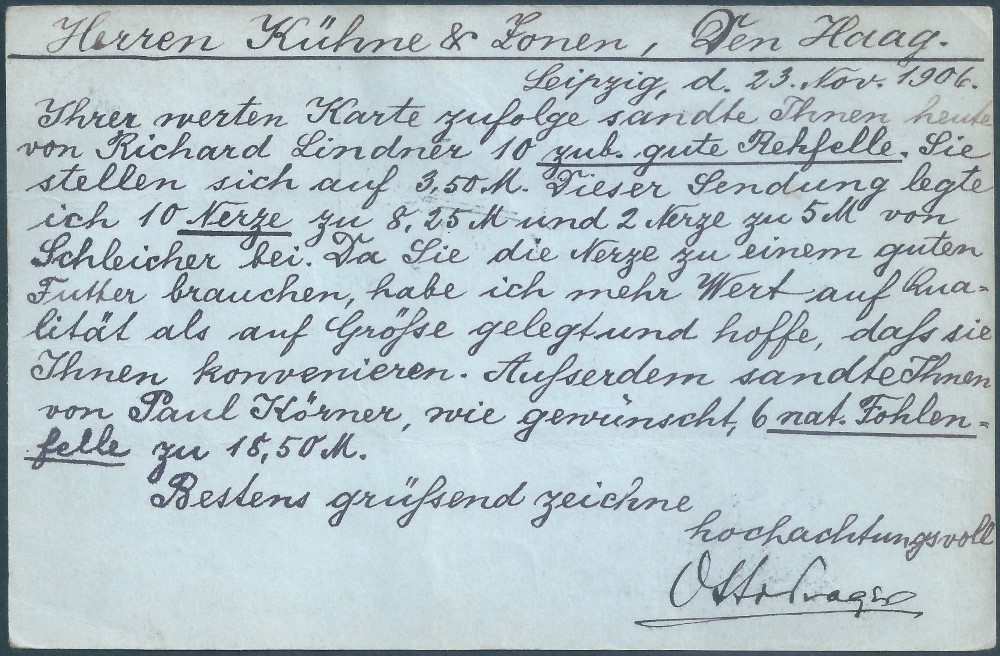 Herren Kühne & Zonen, Den Haag.
Leipzig, d. 23. Nov. 1906.
Ihrer werten Karte zufolge sandte Ihnen heute
von Richard Lindner 10 zub. gute Rehfelle. Sie
stellen sich auf 3,50 M. Dieser Sendung legte
ich 10 Nerze zu 8,25 M und 2 Nerze zu 5 M von
Schleicher bei. Da Sie die Nerze zu einem guten
Futter brauchen, habe ich mehr Wert auf Qua=
lität als auf Größe gelegt und hoffe, daß sie
Ihnen konvenieren. Außerdem sandte Ihnen
von Paul Körner, wie gewünscht, 6 nat. Fohlen=
felle zu 18,50 M.
Bestens grüßend zeichne
hochachtungsvoll
Otto Prager